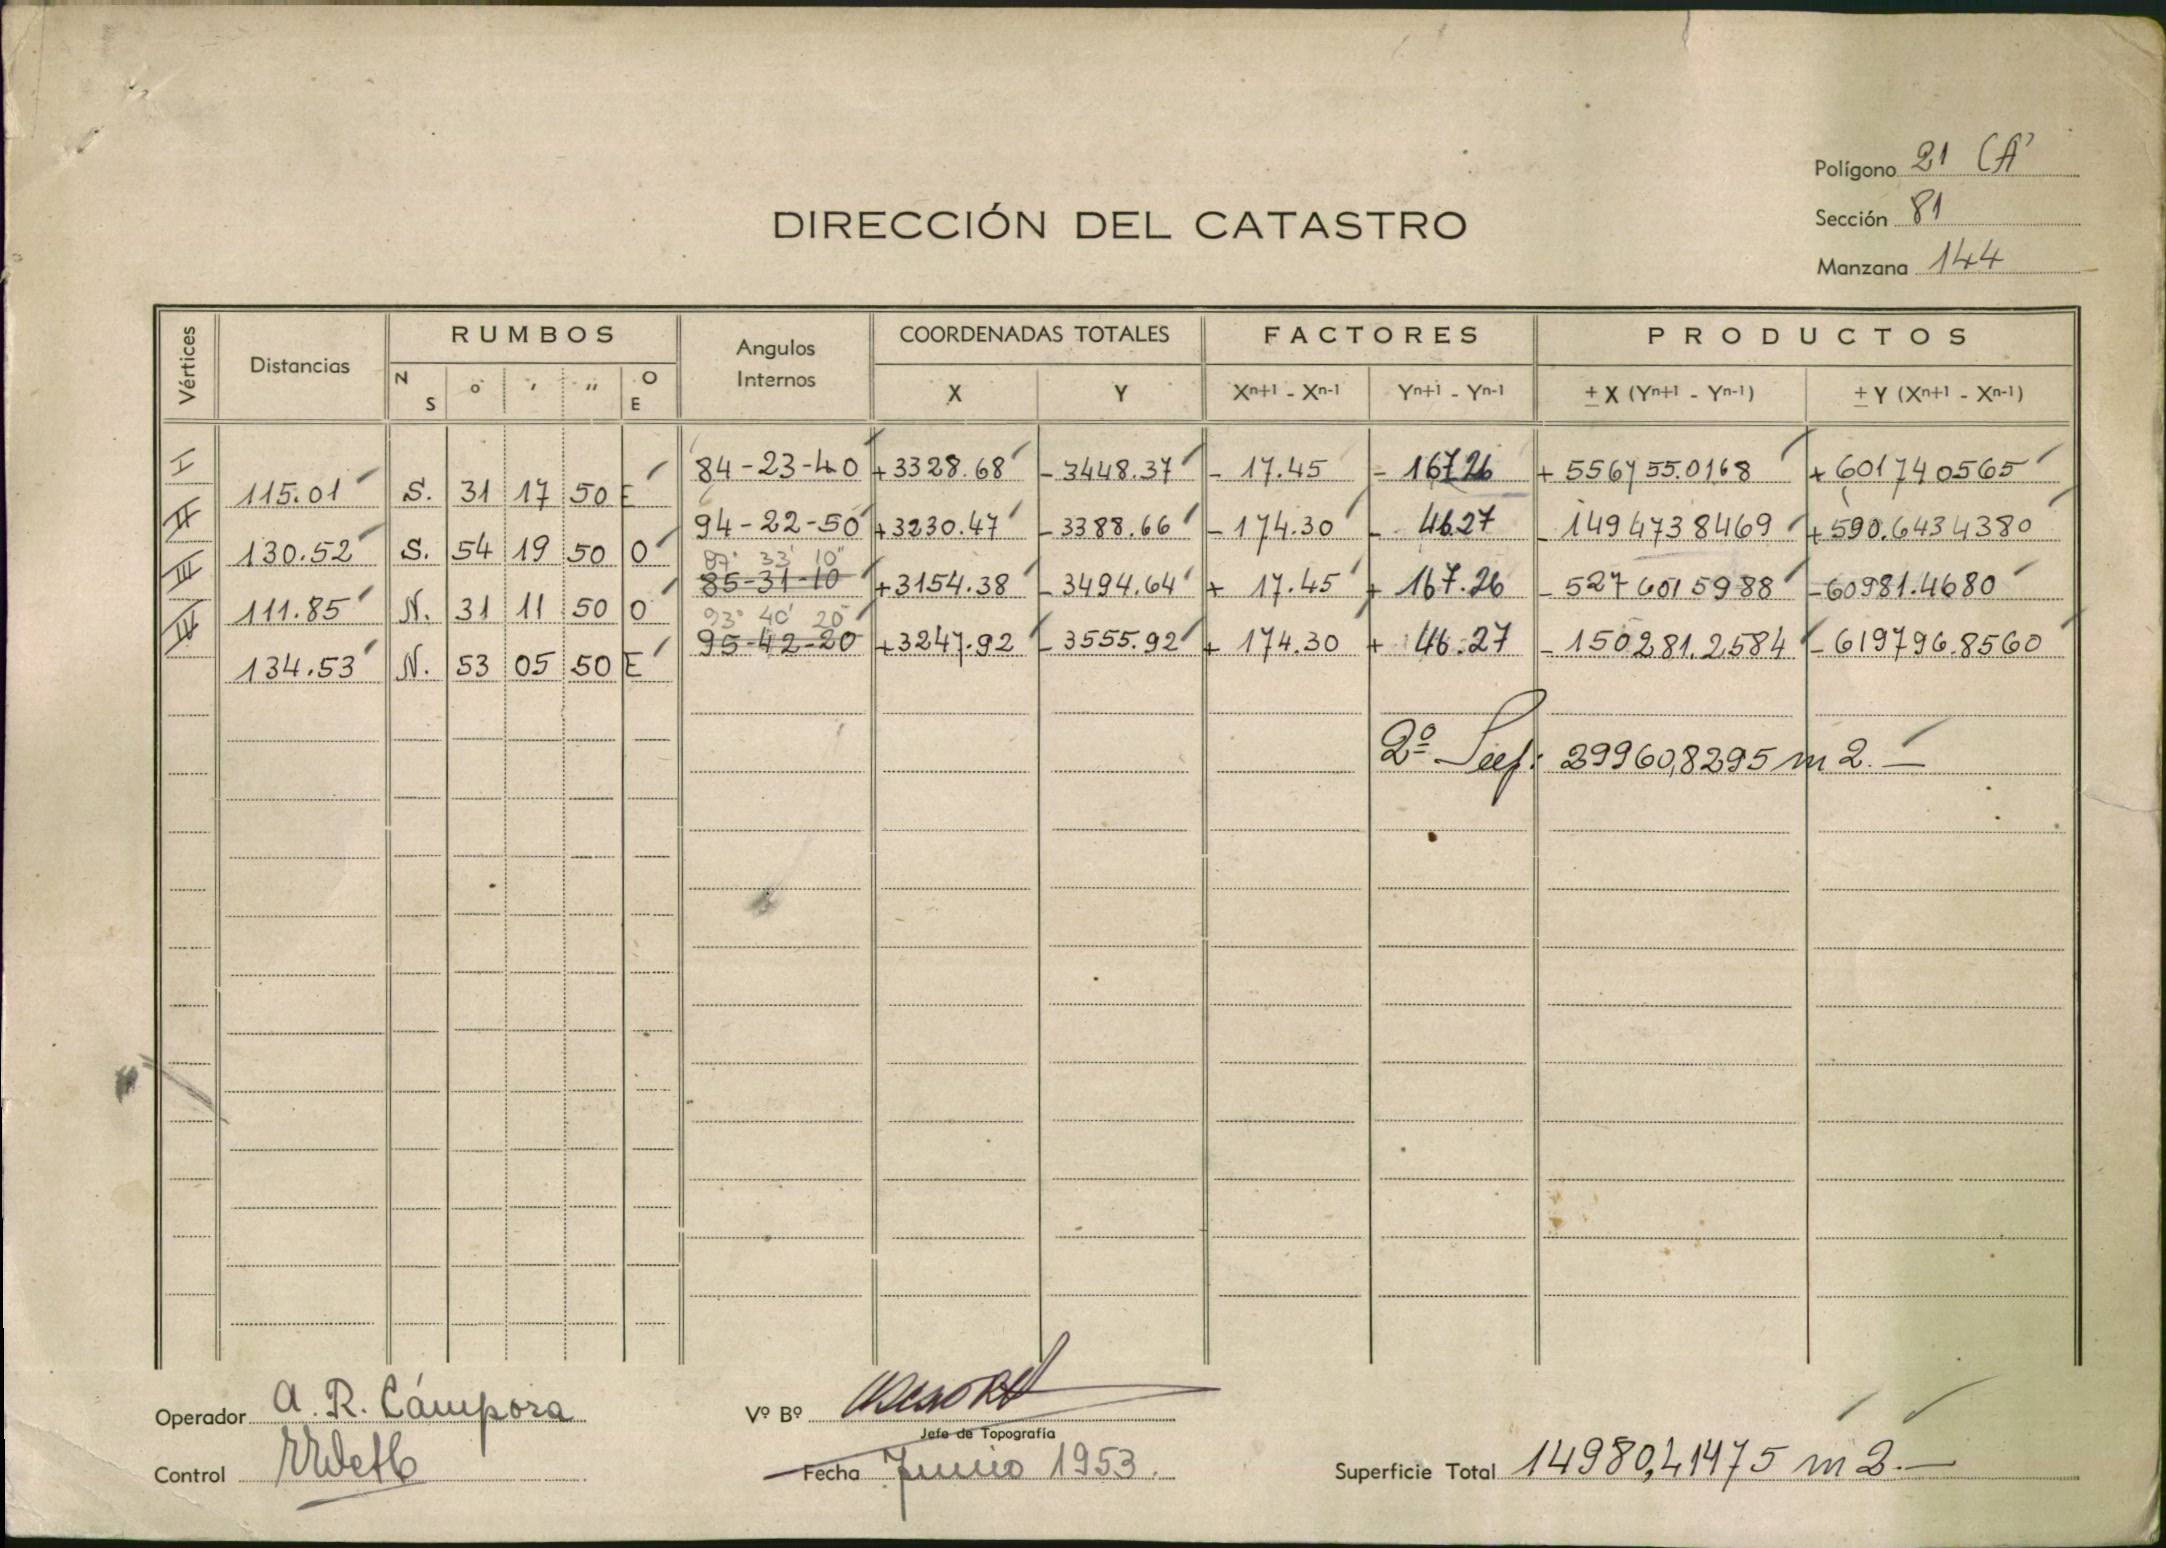 Polígono 21 (A)
Sección 81
Manzana 144
DIRECCIÓN DEL CATASTRO
Vértices Distancias RUMBOS Angulos Internos COORDENADAS TOTALES FACTORES PRODUCTOS
N S o ' " O E X Y Xn+1 - Xn-1 Yn+1 - Yn-1 ± X (Yn+1 - Yn-1) ± Y (Xn+1 - Xn-1)
I 84-23-40 +3328.68 -3448.37 - 17.45 - 167.26 + 556755.0168 + 601740565
115.01 S. 31 17 50 E
II 94-22-50 +3230.47 -3388.66 - 174.30 - 46.27 - 1494738469 +590.6434380
130.52 S. 54 19 50 O
87° 33' 10"
III 85-31-10 +3154.38 -3494.64 + 17.45 + 167.26 - 5276015988 -60981.4680
111.85 N. 31 11 50 O
93° 40' 20"
IV 95-42-20 +3247.92 -3555.92 + 174.30 + 46.27 - 150281.2584 - 619796.8560
134.53 N. 53 05 50 E
2º Sup: 29960,8295 m2.—
Operador A. R. Cámpora
Vº Bº
Jefe de Topografía
Control
Fecha Junio 1953.
Superficie Total 14980,41475 m2.—